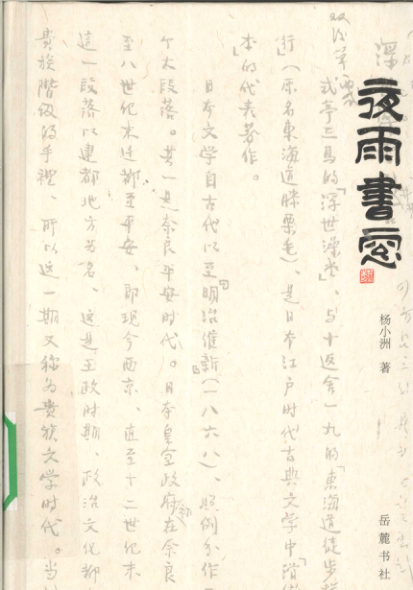 夜雨書窗
杨小洲 著
岳麓书社
式亭三馬的「浮世澡堂」、与十返舍一九的「東海道徒步
行」(原名東海道膝栗毛)、是日本江户时代古典文学中「滑
本」的代表著作。
日本文学自古代以至明治維新(一八六八)、照例分作
个大段落。其一是奈良平安时代。日本皇室政府在奈良
至八世纪末迁都至平安、即现今西京、直至十二世纪末
這一段落以建都地方为名、这是王政时期、政治文化都
貴族階级的手裡、所以这一期又称为貴族文学时代。当